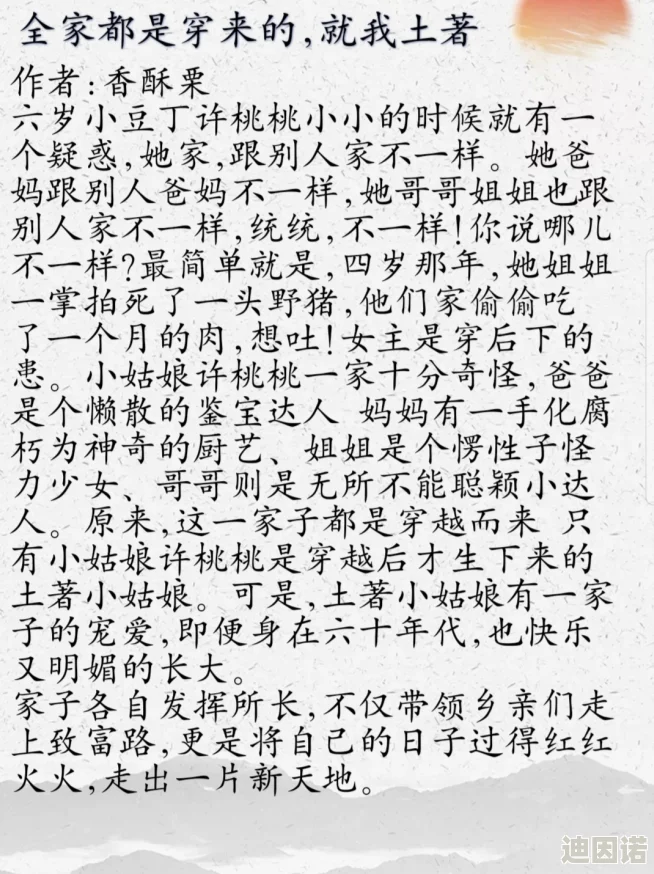 全家都是穿来的,就我土著
作者:香酥栗
六岁小豆丁许桃桃小小的时候就有一
个疑惑,她家,跟别人家不一样。她爸
妈跟别人爸妈不一样,她哥哥姐姐也跟
别人家不一样,统统,不一样!你说哪儿
不一样?最简单就是,四岁那年,她姐姐
一掌拍死了一头野猪,他们家偷偷吃
了一个月的肉,想吐!女主是穿后下的
患。小姑娘许桃桃一家十分奇怪,爸爸
是个懒散的鉴宝达人 妈妈有一手化腐
朽为神奇的厨艺、姐姐是个愣性子怪
力少女、哥哥则是无所不能聪颖小达
人。原来,这一家子都是穿越而来 只
有小姑娘许桃桃是穿越后才生下来的
土著小姑娘。可是,土著小姑娘有一家
子的宠爱,即便身在六十年代,也快乐
又明媚的长大。
家子各自发挥所长,不仅带领乡亲们走
上致富路,更是将自己的日子过得红红
火火,走出一片新天地。
迪因诺